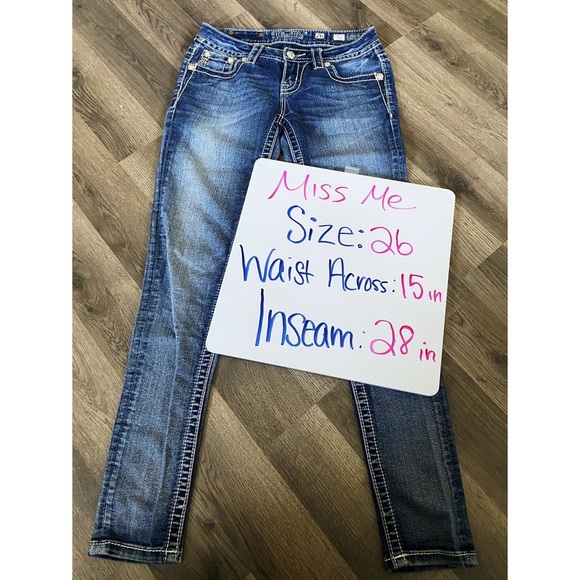 Miss Me
Size: 26
Waist Across: 15 in
Inseam: 28 in